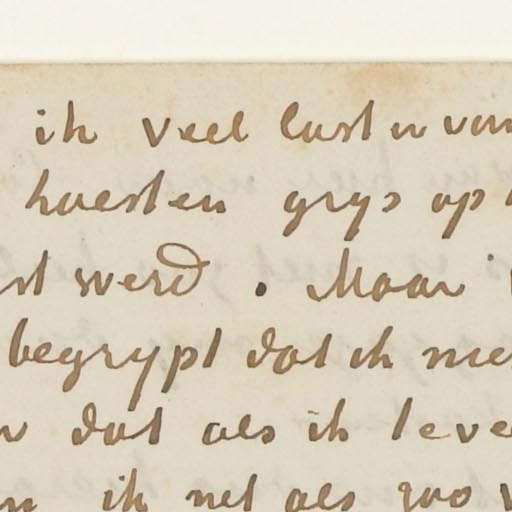 ik veel last er van
hoesten grys op
st werd. Maar
begrypt dat ik niet
dat als ik leve
ik net als zoo